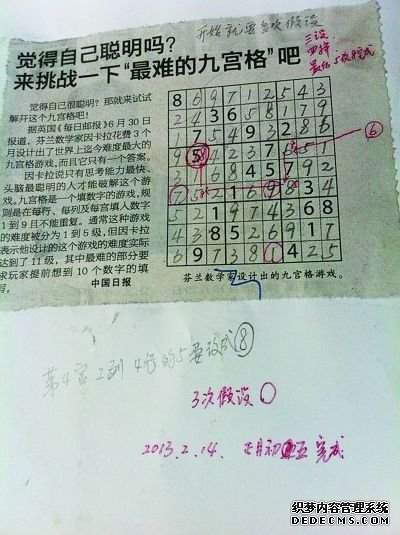 开始就要多次假设
觉得自己聪明吗？
来挑战一下“最难的九宫格”吧
三设
觉得自己很聪明？那就来试试
解开这个九宫格吧！
据英国《每日邮报》6月30日
报道，芬兰数学家因卡拉花费3个
月设计出了世界上迄今难度最大的
九宫格游戏，而且它只有一个答案。
因卡拉说只有思考能力最快、
头脑最聪明的人才能破解这个游
戏。九宫格是一个填数字的游戏，规
则是在每行、每列及每宫填入数字
1到9且不能重复。通常这种游戏
的难度被分为1到5级，但因卡拉
表示他设计的这个游戏的难度实际
达到了11级，其中最难的部分要
求玩家提前想到10个数字的填
写。
中国日报
8 6 9 7 1 2 5 4 3
2 4 3 6 5 8 1 7 9
1 7 5 4 9 3 2 8 6
9 5 4 2 3 7 5 1
3 1 6 8 4 5 7 9 2
7 5 2 1 6 9 8 3 4
5 2 1 9 7 4 3 6 8
4 3 8 5 2 6 9 1 7
6 9 7 3 8 1 4 2 5
⑥
芬兰数学家设计出的九宫格游戏。
第4宫2列4行的5要改成⑧
3次假设
2013.2.14. 正月初五完成
织梦内容管理系统
DEDECMS.COM